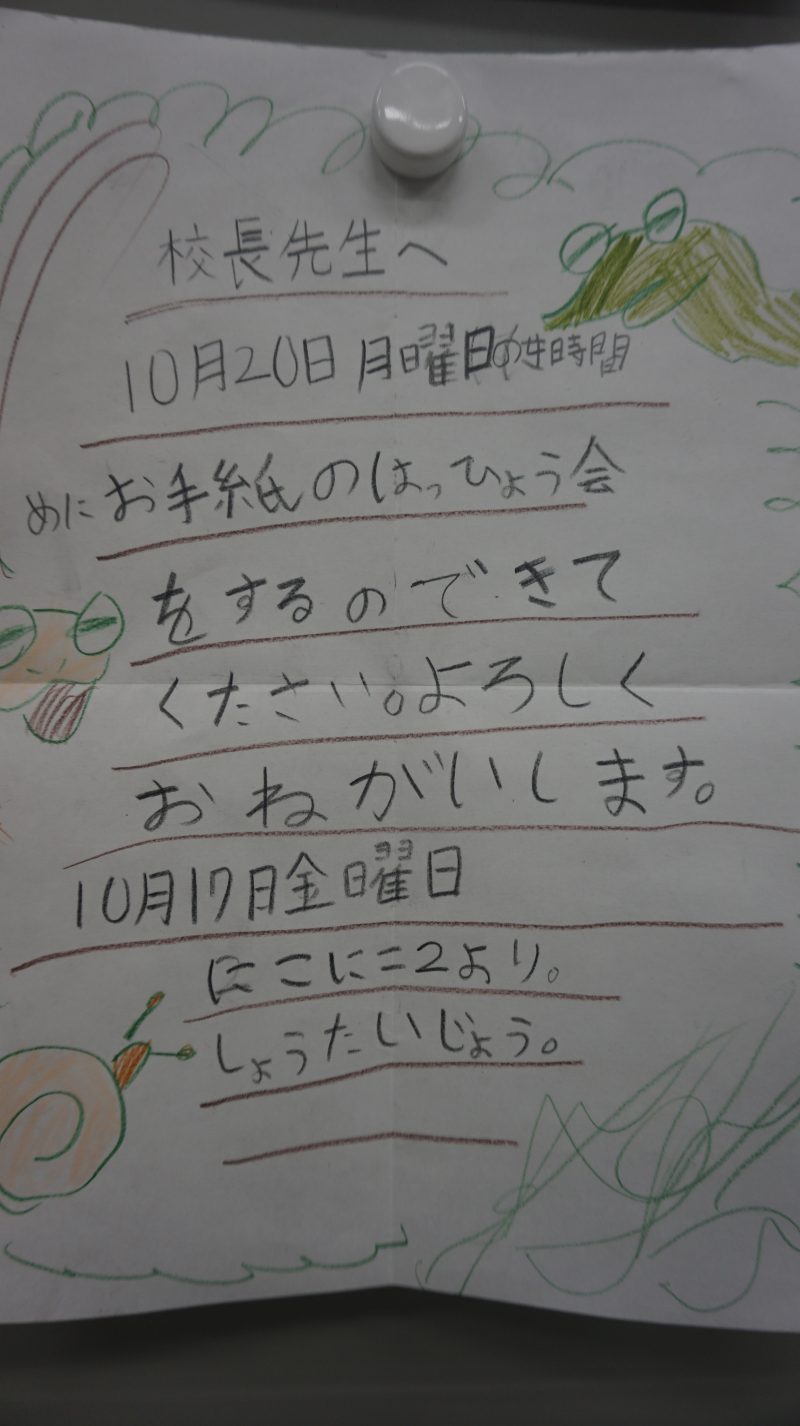 校長先生へ
10月20日月曜日の時間
めにお手紙のはっひょう会
をするのできて
ください。よろしく
おねがいします。
10月17日金曜日
にこにこ2より。
しょうたいじょう。